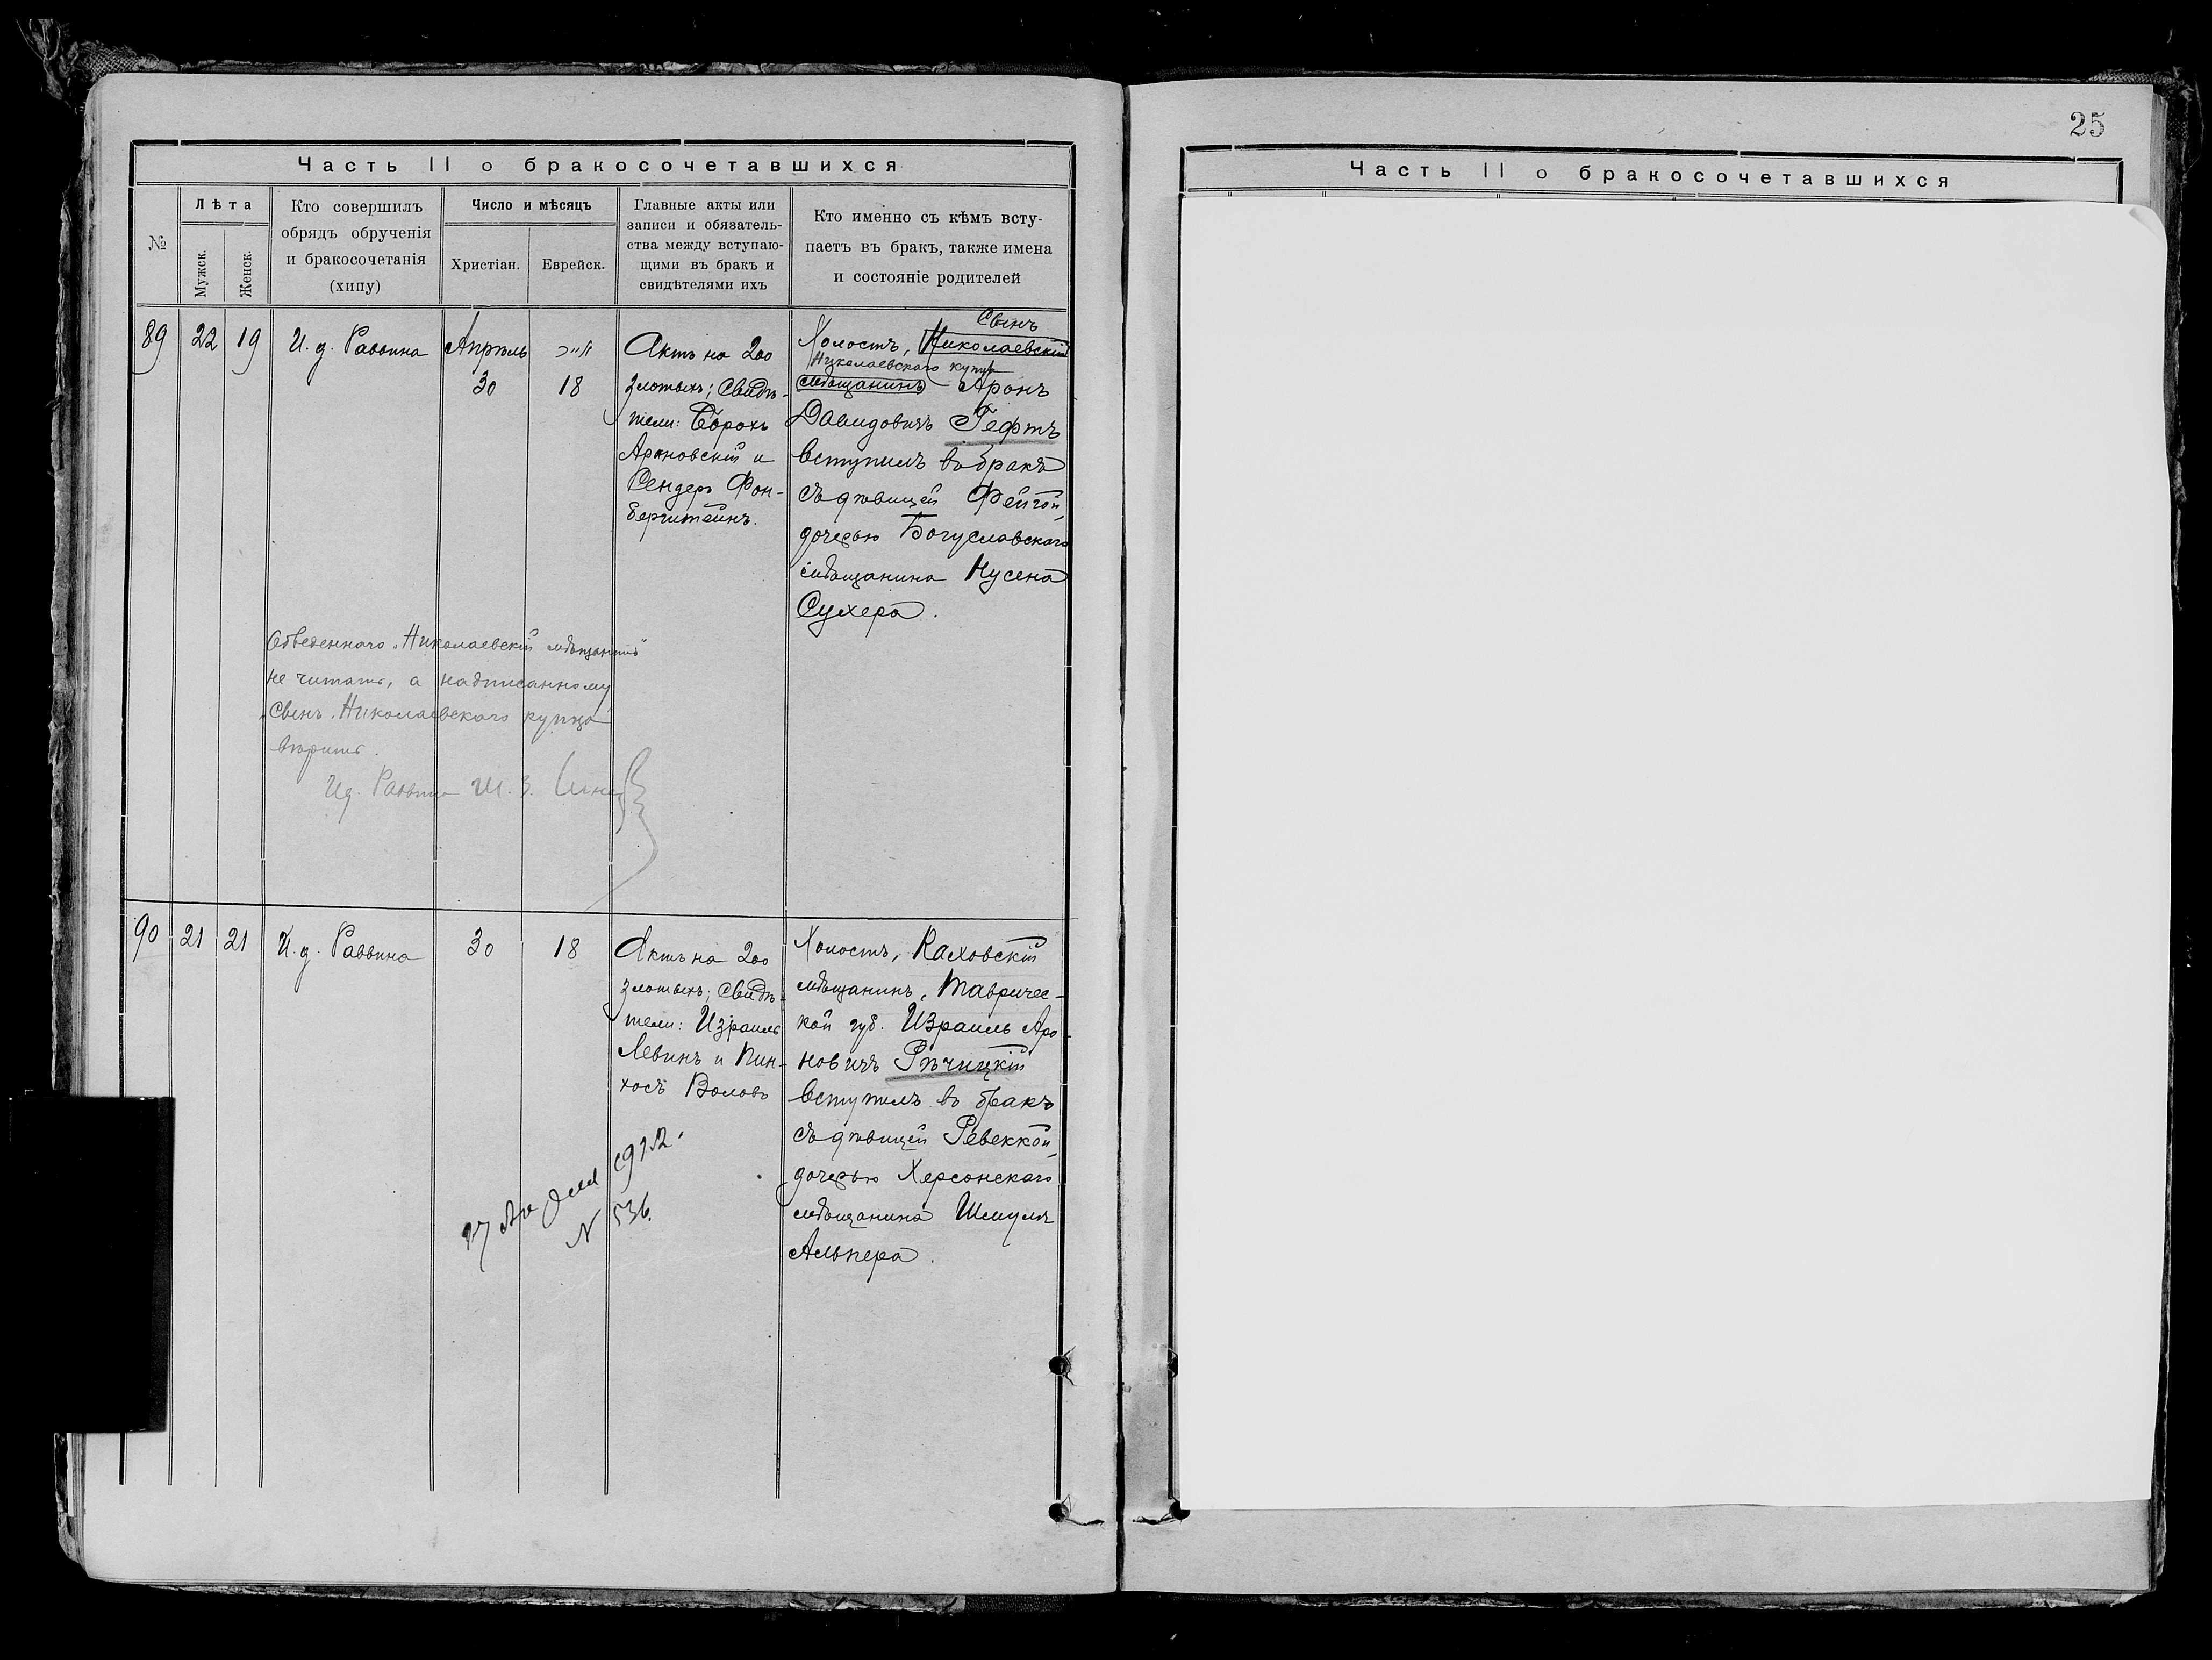 25
Часть II о бракосочетавшихся
№
Лѣта
Мужск.
Женск.
Кто совершилъ
обрядъ обрученія
и бракосочетанія
(хипу)
Число и мѣсяцъ
Христіан.
Еврейск.
Главные акты или
записи и обязатель-
ства между вступаю-
щими въ бракъ и
свидѣтелями ихъ
Кто именно съ кѣмъ всту-
паетъ въ бракъ, также имена
и состояніе родителей
89
22
19
И. д. Раввина
Апрѣль
30
18
Актъ на 200
злотыхъ; свидѣ-
тели: Борохъ
Ароновскій и
Сендеръ Фон-
берштейнъ.
Сынъ
Холостъ, Николаевскій
Николаевскаго купца
мѣщанинъ Аронъ
Давидовичъ Гефтъ
вступилъ въ бракъ
съ дѣвицей Фейгой,
дочерью Богуславскаго
мѣщанина Нусена
Сухера.
Обведеннаго „Николаевскій мѣщанинъ"
не читать, а надписанному
„Сынъ Николаевскаго купца"
вѣрить.
Ид. Раввина Ш. З.
90
21
21
И. д. Раввина
30
18
Актъ на 200
злотыхъ; свидѣ-
тели: Израиль
Левинъ и Пин-
хосъ Воловъ
Холостъ, Каховскій
мѣщанинъ, Тавричес-
кой губ. Израиль Аро-
новичъ Рѣчицкій
вступилъ въ бракъ
съ дѣвицей Ревеккой,
дочерью Херсонскаго
мѣщанина Шмуля
Альпера.
1912.
N 536.
Часть II о бракосочетавшихся